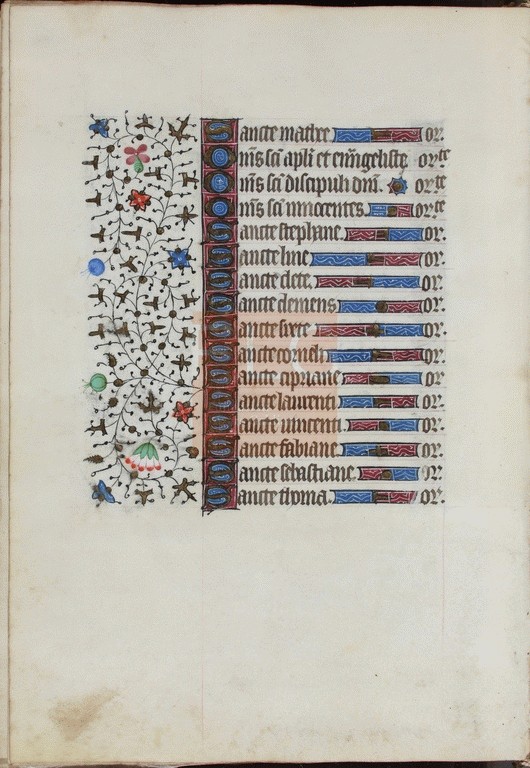 Sancte mathee or.
Om̄s sc̄i apl̄i et eūngeliste or̄te
Om̄s sc̄i discipuli dn̄i. or̄te
Om̄s sc̄i innocentes or̄te
Sancte stephane. or.
Sancte line or.
Sancte clete. or.
Sancte clemens or.
Sancte sixte or.
Sancte corneli or.
Sancte cipriane or
Sancte laurenti or.
Sancte vincenti or.
Sancte fabiane or.
Sancte sebastiane. or.
Sancte thoma. or.